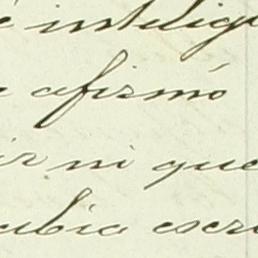 é inteligi
e afirmó
ir ni que
cubia escri